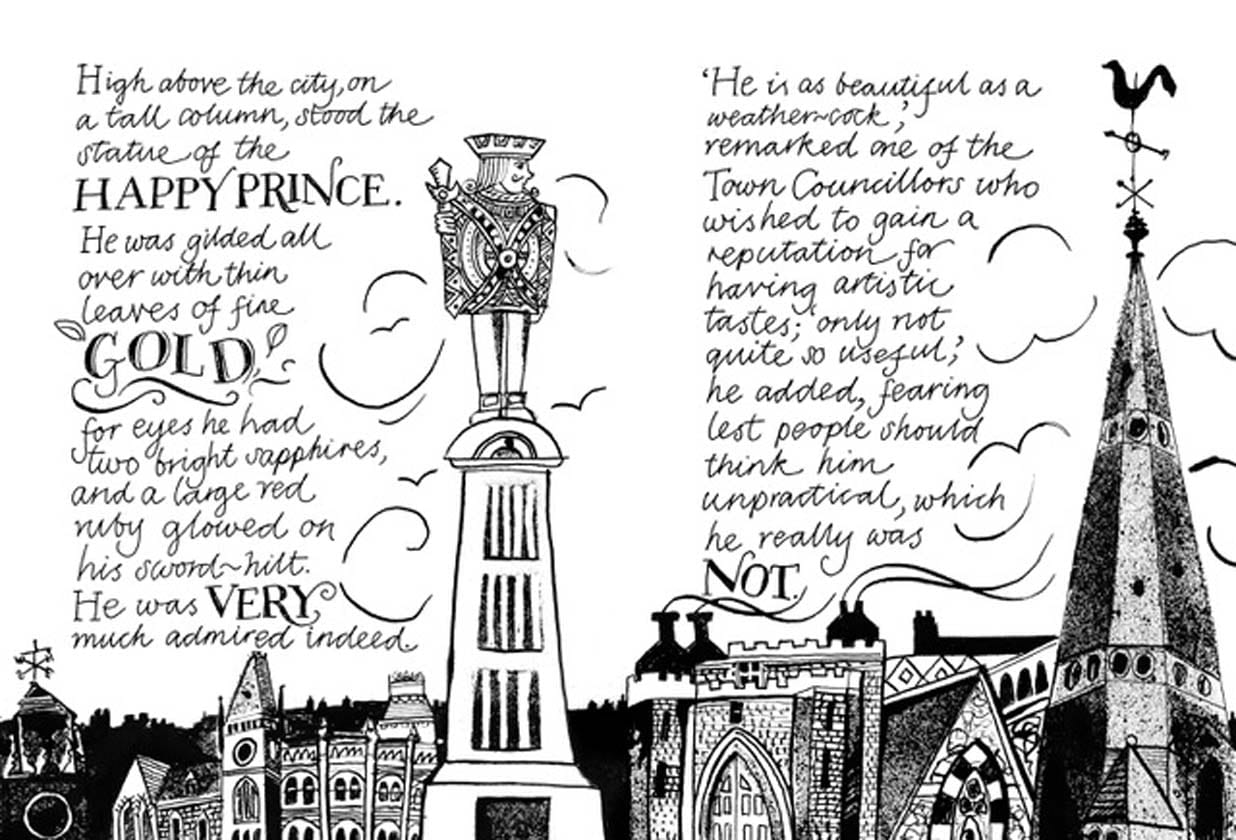 High above the city, on
a tall column, stood the
statue of the
HAPPY PRINCE.
He was gilded all
over with thin
leaves of fine
GOLD,
for eyes he had
two bright sapphires,
and a large red
ruby glowed on
his sword~hilt.
He was VERY
much admired indeed.
‘He is as beautiful as a
weather~cock’,
remarked one of the
Town Councillors who
wished to gain a
reputation for
having artistic
tastes; ‘only not
quite so useful’,
he added, fearing
lest people should
think him
unpractical, which
he really was
NOT.